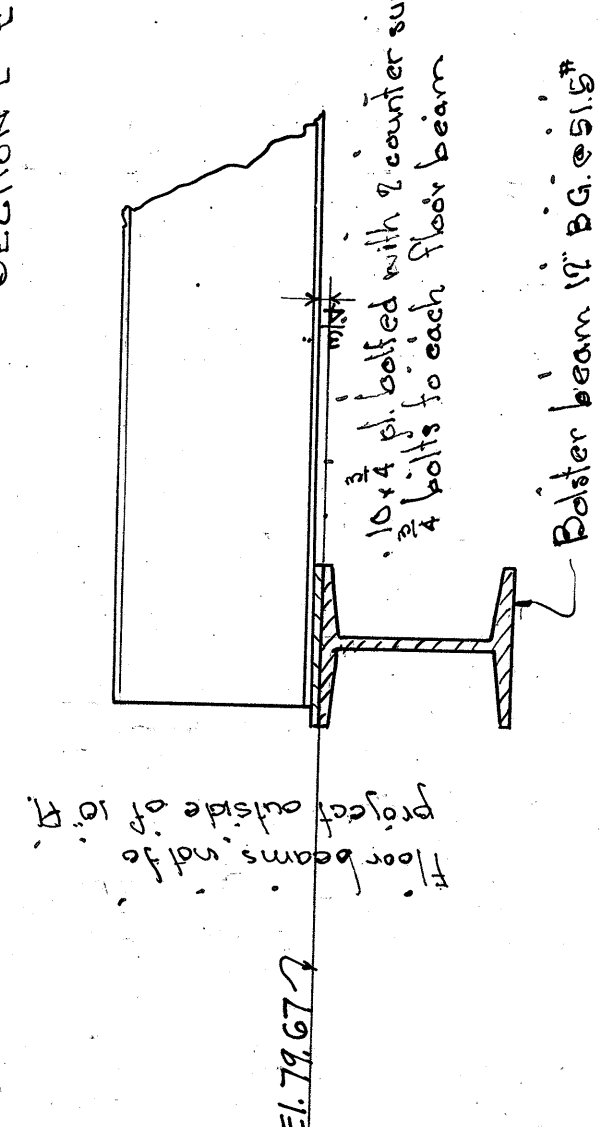 SECTION
10 x 3/4 pl. bolted with 2 counter su
3/4 bolts to each floor beam
3/4"
Bolster beam 12" BG. @ 51.5#
Floor beams not to
project outside of 10" Pl.
El. 79.67